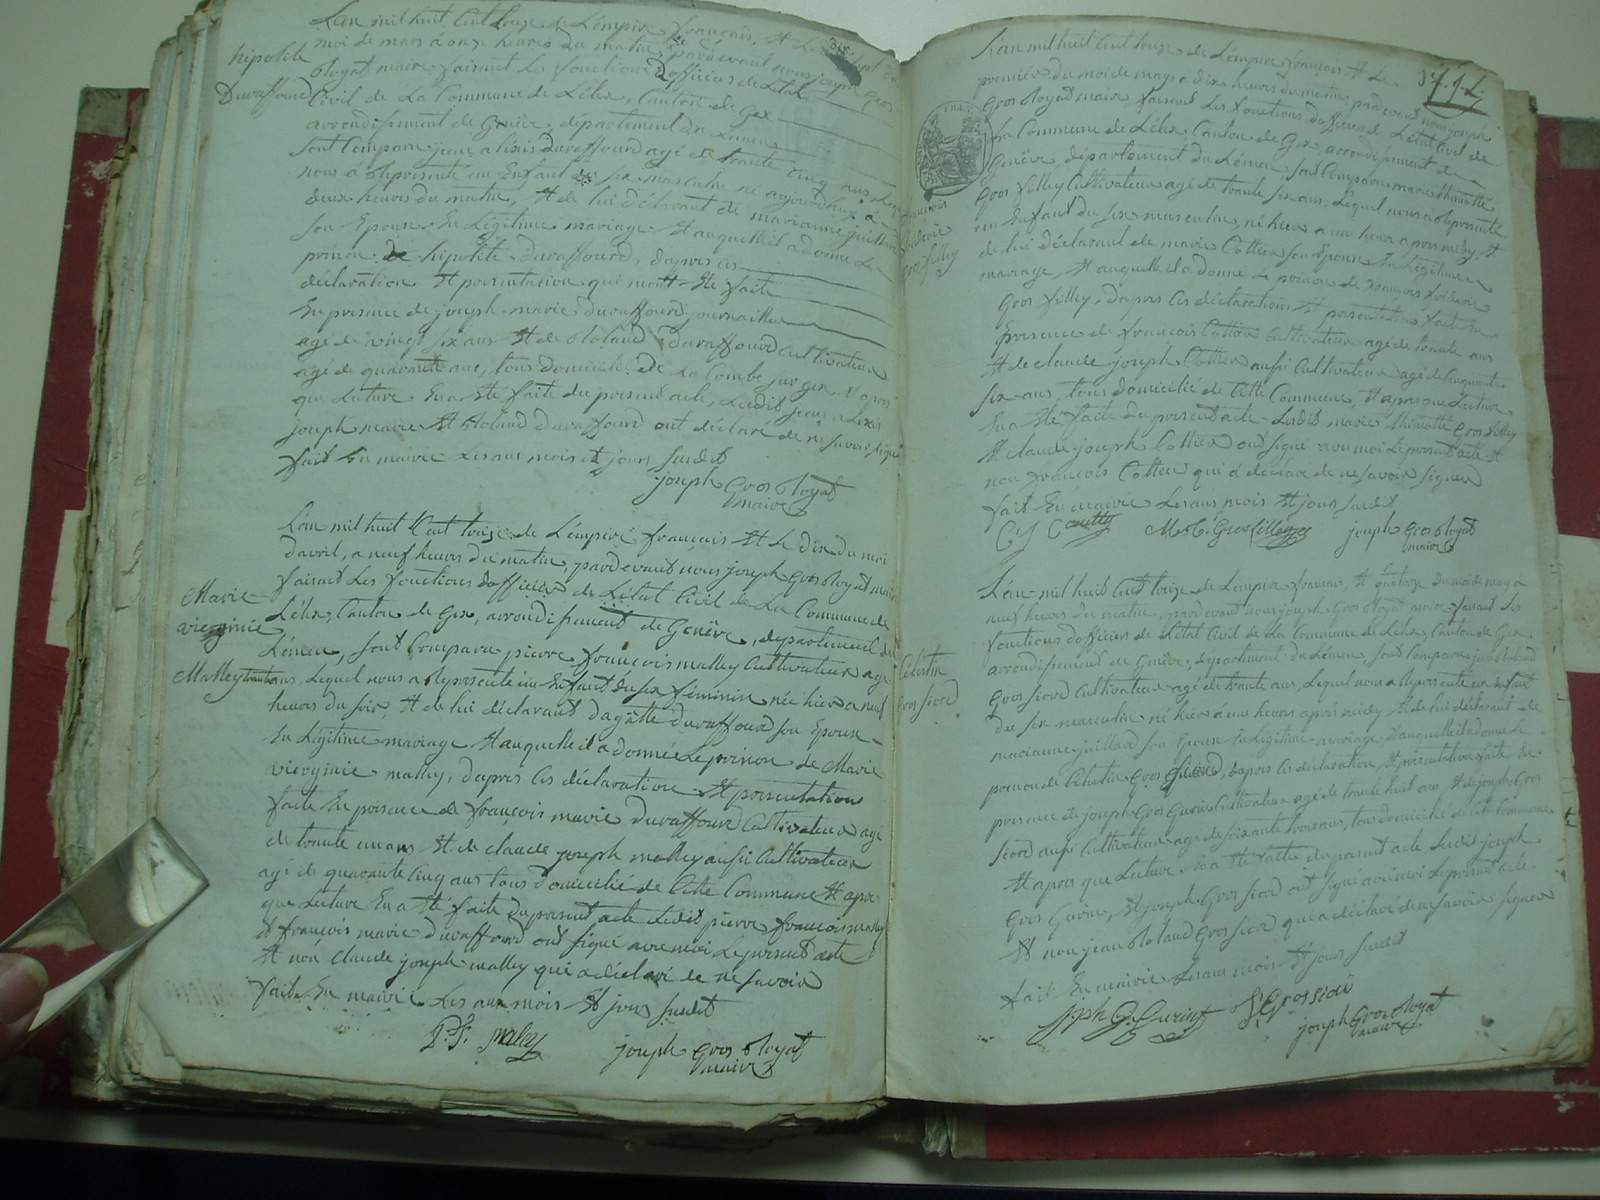 hipolite
Duraffourd
L'an mil huit Cent treize de L'empire francais, Et Le dix sept du
moi de mars à onze heures du matin, pardevant nous joseph Gros
Royat maire faisant Les fonctions d'officier de L'etat
Civil de La Commune de Lélex, Canton de Gex
arrondissement de Genève, département du Léman
sont Comparu jean alexis duraffourd agé de trente cinq ans Lequel
nous à Représenté un Enfant de sex masculin né aujourdhui à
deux heures du matin, Et de lui déclarant de marianne juillard
son Epouse En Légitime mariage Et auquelle il a donné Le
prénon de hipolite duraffourd, daprès ces
déclaration Et présentation qui m'ont Eté faite
En présence de joseph marie duraffourd journaillier
agé de vingt six ans Et de Roland Duraffourd Cultivateur
agé de quarante ans, tous domicilié de La Combe sur gex, Et après
que Lecture En a Eté faite du présent acte, Ledit jean alexis
joseph marie Et Roland Duraffourd ont déclaré de ne savoir signé
fait En mairie Les ans mois et jours susdit
joseph Gros Royat
maire
Marie
viérginie
Malley
L'an mil huit Cent treize de L'empire francais Et Le dix du moi
d'avril, a neuf heures du matin, pardevant nous joseph Gros Royat maire
faisant Les fonctions d'officier de L'état Civil de La Commune de
Lélex, Canton de Gex, arrondissement de Genève, département du
Léman, sont Comparu pierre francois malley Cultivateur agé
trente ans, Lequel nous a Représenté un Enfant du sex féminin née hier a neuf
heures du soir, Et de lui déclarant d'agathe duraffourd son Epouse
En Légitime mariage Et auquelle il a donnée Le prénon de Marie
viérginie malley, daprès Ces déclaration Et présentation
faite En présence de francois marie duraffourd Cultivateur agé
de trente un ans Et de claude joseph malley aussi Cultivateur
agé de quarante Cinq ans tous domicilié de Cette Commune Et après
que Lecture En a Eté faite du présent acte Ledit pierre francois malley
Et francois marie duraffourd ont signé avec moi Le présent acte
Et non claude joseph malley qui a déclaré de ne savoir
fait En mairie Les ans mois Et jours susdit
P. F. maley
joseph Gros Royat
maire
francois
Gros filley
L'an mil huit Cent treize de L'empire francais Et Le
premier du moi de may a dix heures du matin, pardevant nous joseph
Gros Royat maire, faisant Les fonctions d'officier de L'état Civil de
La Commune de Lélex, Canton de Gex, arrondissement de
Genève, département du Léman, sont Comparu marie thimotté
Gros filley Cultivateur agé de trente six ans, Lequel nous a Représenté
un Enfant du sex masculin, né hier a une heure après midy, Et
de lui déclarant de marie Cottier son Epouse En Légitime
mariage, Et auquelle il a donné Le prénon de francois
Gros filley, daprès Ces déclarations Et présentation faite En
présence de francois Cottier Cultivateur agé de trente ans
Et de claude joseph Cottier aussi Cultivateur agé de Cinquante
six ans, tous domicilié de Cette Commune, Et après que Lecture
En a Eté faite du présent acte Ledit marie thimotté Gros filley
Et claude joseph Cottier ont signé avec moi Le présent acte Et
non francois Cottier qui a déclaré de ne savoir signer
fait En mairie Les ans mois Et jours susdit
joseph Gros Royat
maire
Célestin
Gros siord
L'an mil huit Cent treize de L'empire francais, Et quatorze du moi de may a
neuf heures du matin, pardevant nous joseph Gros Royat maire faisant Les
fonctions d'officier de L'état Civil de La Commune de Lélex, Canton de Gex
arrondissement de Genève, département du Léman, sont Comparu jean Roland
Gros siord Cultivateur agé de trente ans, Lequel nous a Représenté un Enfant
du sex masculin né hier à une heures après midy Et de lui déclarant de
marianne juillard son Epouse En Légitime mariage Et auquelle il a donné Le
prénon de Célestin Gros siord, daprès Ces déclaration, Et présentation faite En
présence de joseph Gros Gurin Cultivateur agé de trente huit ans Et de joseph Gros
siord aussi Cultivateur agé de soixante trois ans, tous domicilié de Cette Commune
Et après que Lecture En a Eté faite du présent acte Ledit joseph
Gros Gurin, Et joseph Gros siord ont signé avec moi Le présent acte
Et non jean Roland Gros siord qui a déclaré de ne savoir signer
fait En mairie Les ans mois Et jours susdit
jph G. Gurin
J Grossiord
joseph Gros Royat
maire